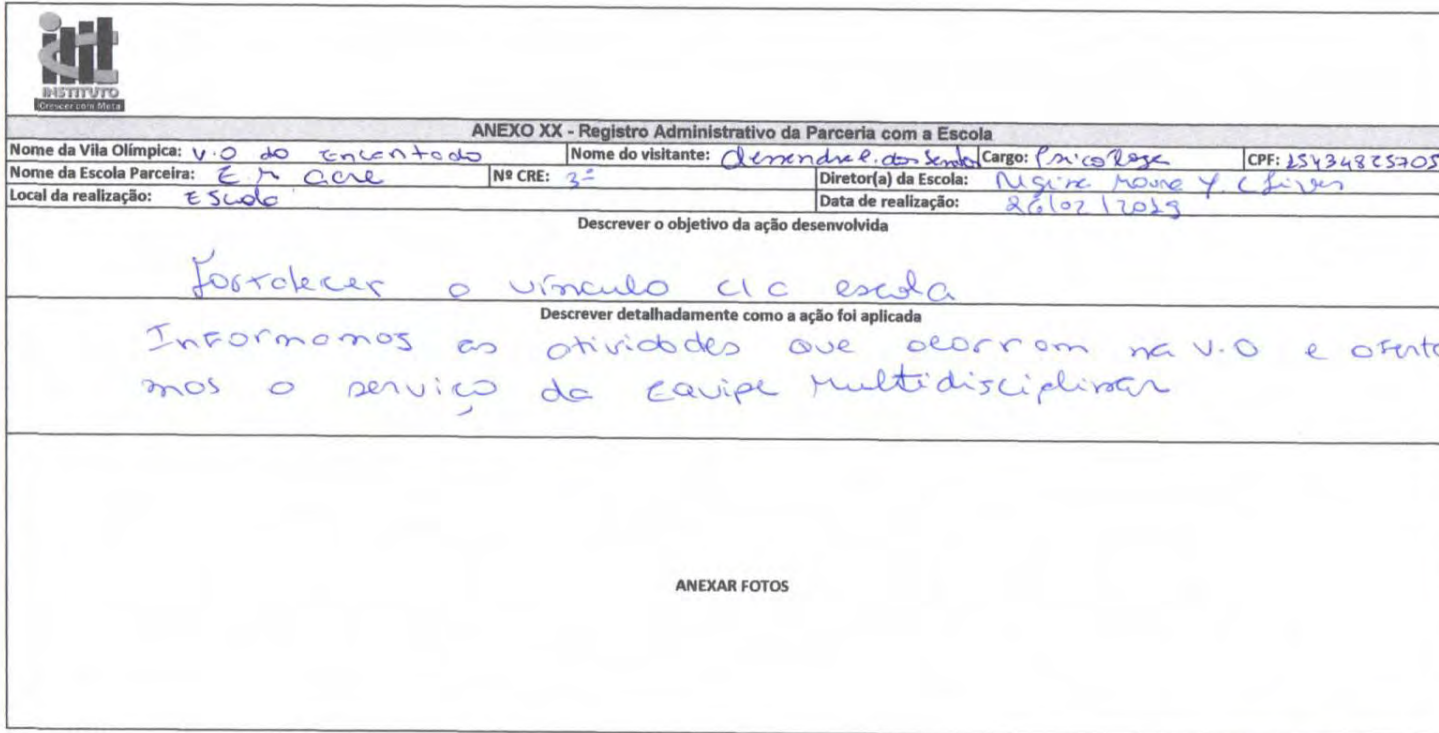 INSTITUTO
Crescer com Meta
ANEXO XX - Registro Administrativo da Parceria com a Escola
Nome da Vila Olímpica: V.O do Encantado Nome do visitante: Cargo: Psicologa CPF: 15434825705
Nome da Escola Parceira: E.M acre Nº CRE: 3ª Diretor(a) da Escola: Regina
Local da realização: Escola Data de realização: 26/02/2019
Descrever o objetivo da ação desenvolvida
Fortalecer o vínculo c/c escola
Descrever detalhadamente como a ação foi aplicada
Informamos as atividades que ocorrem na V.O e
mos o serviço da Equipe Multidisciplinar
ANEXAR FOTOS